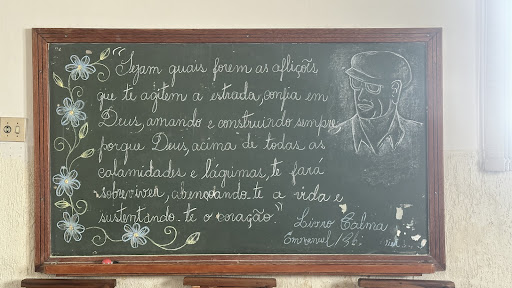 "Sejam quais forem as aflições
que te agitem a estrada, confia em
Deus, amando e construindo sempre,
porque Deus, acima de todas as
calamidades e lágrimas, te fará
sobreviver, abençoando-te a vida e
sustentando-te o coração."
Livro Calma
Emmanuel